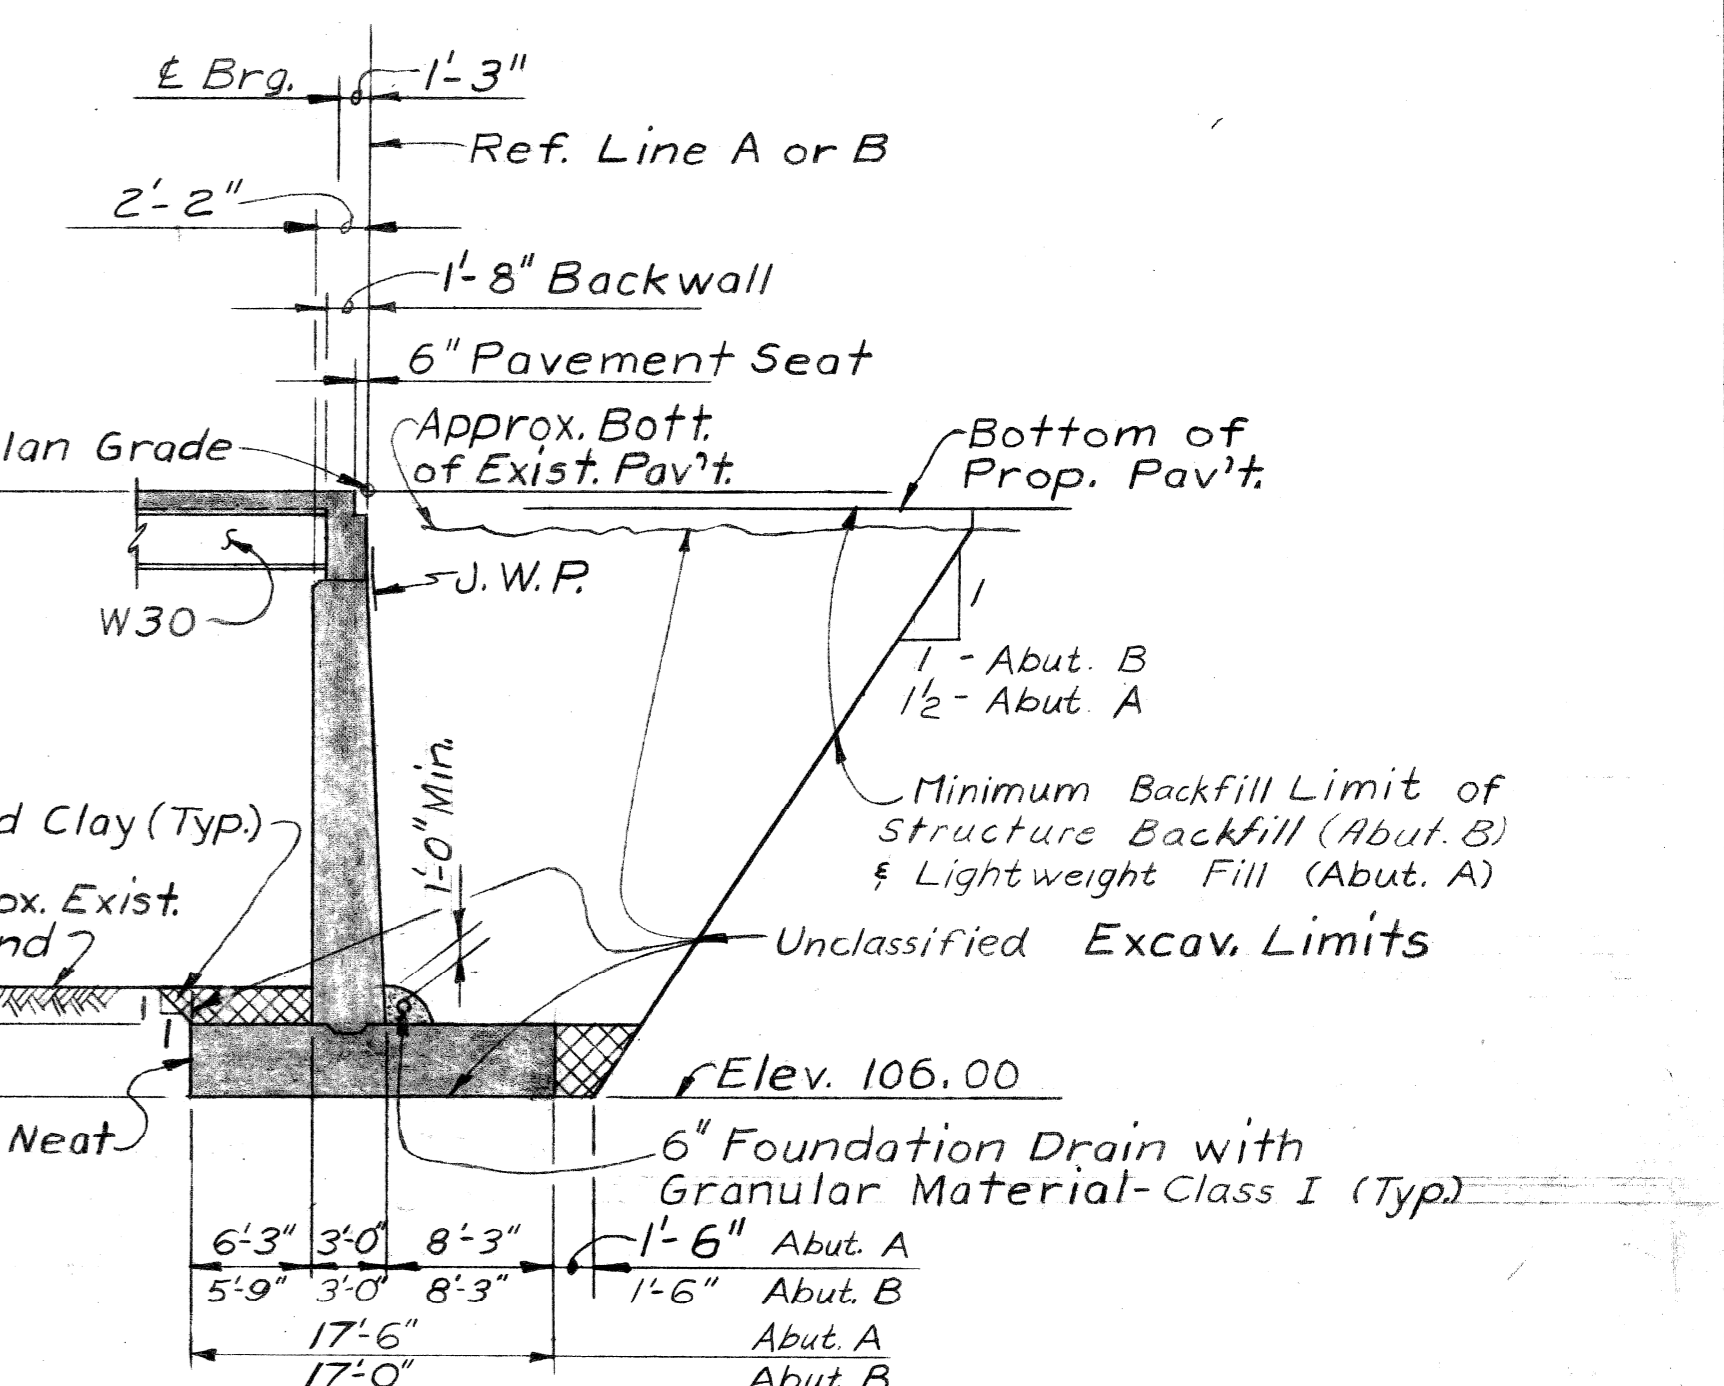 ℄ Brg.
1'-3"
Ref. Line A or B
2'-2"
1'-8" Backwall
6" Pavement Seat
Approx. Bott.
of Exist. Pav't.
lan Grade
Bottom of
Prop. Pav't.
J.W.P.
W30
1
1 - Abut. B
1½ - Abut. A
1'-0" Min.
Minimum Backfill Limit of
Structure Backfill (Abut. B)
& Lightweight Fill (Abut. A)
d Clay (Typ.)
ox. Exist.
nd
Unclassified Excav. Limits
1
1
Elev. 106.00
Neat
6" Foundation Drain with
Granular Material-Class I (Typ.)
6'-3" 3'-0" 8'-3" 1'-6" Abut. A
5'-9" 3'-0" 8'-3" 1'-6" Abut. B
17'-6" Abut. A
17'-0" Abut. B